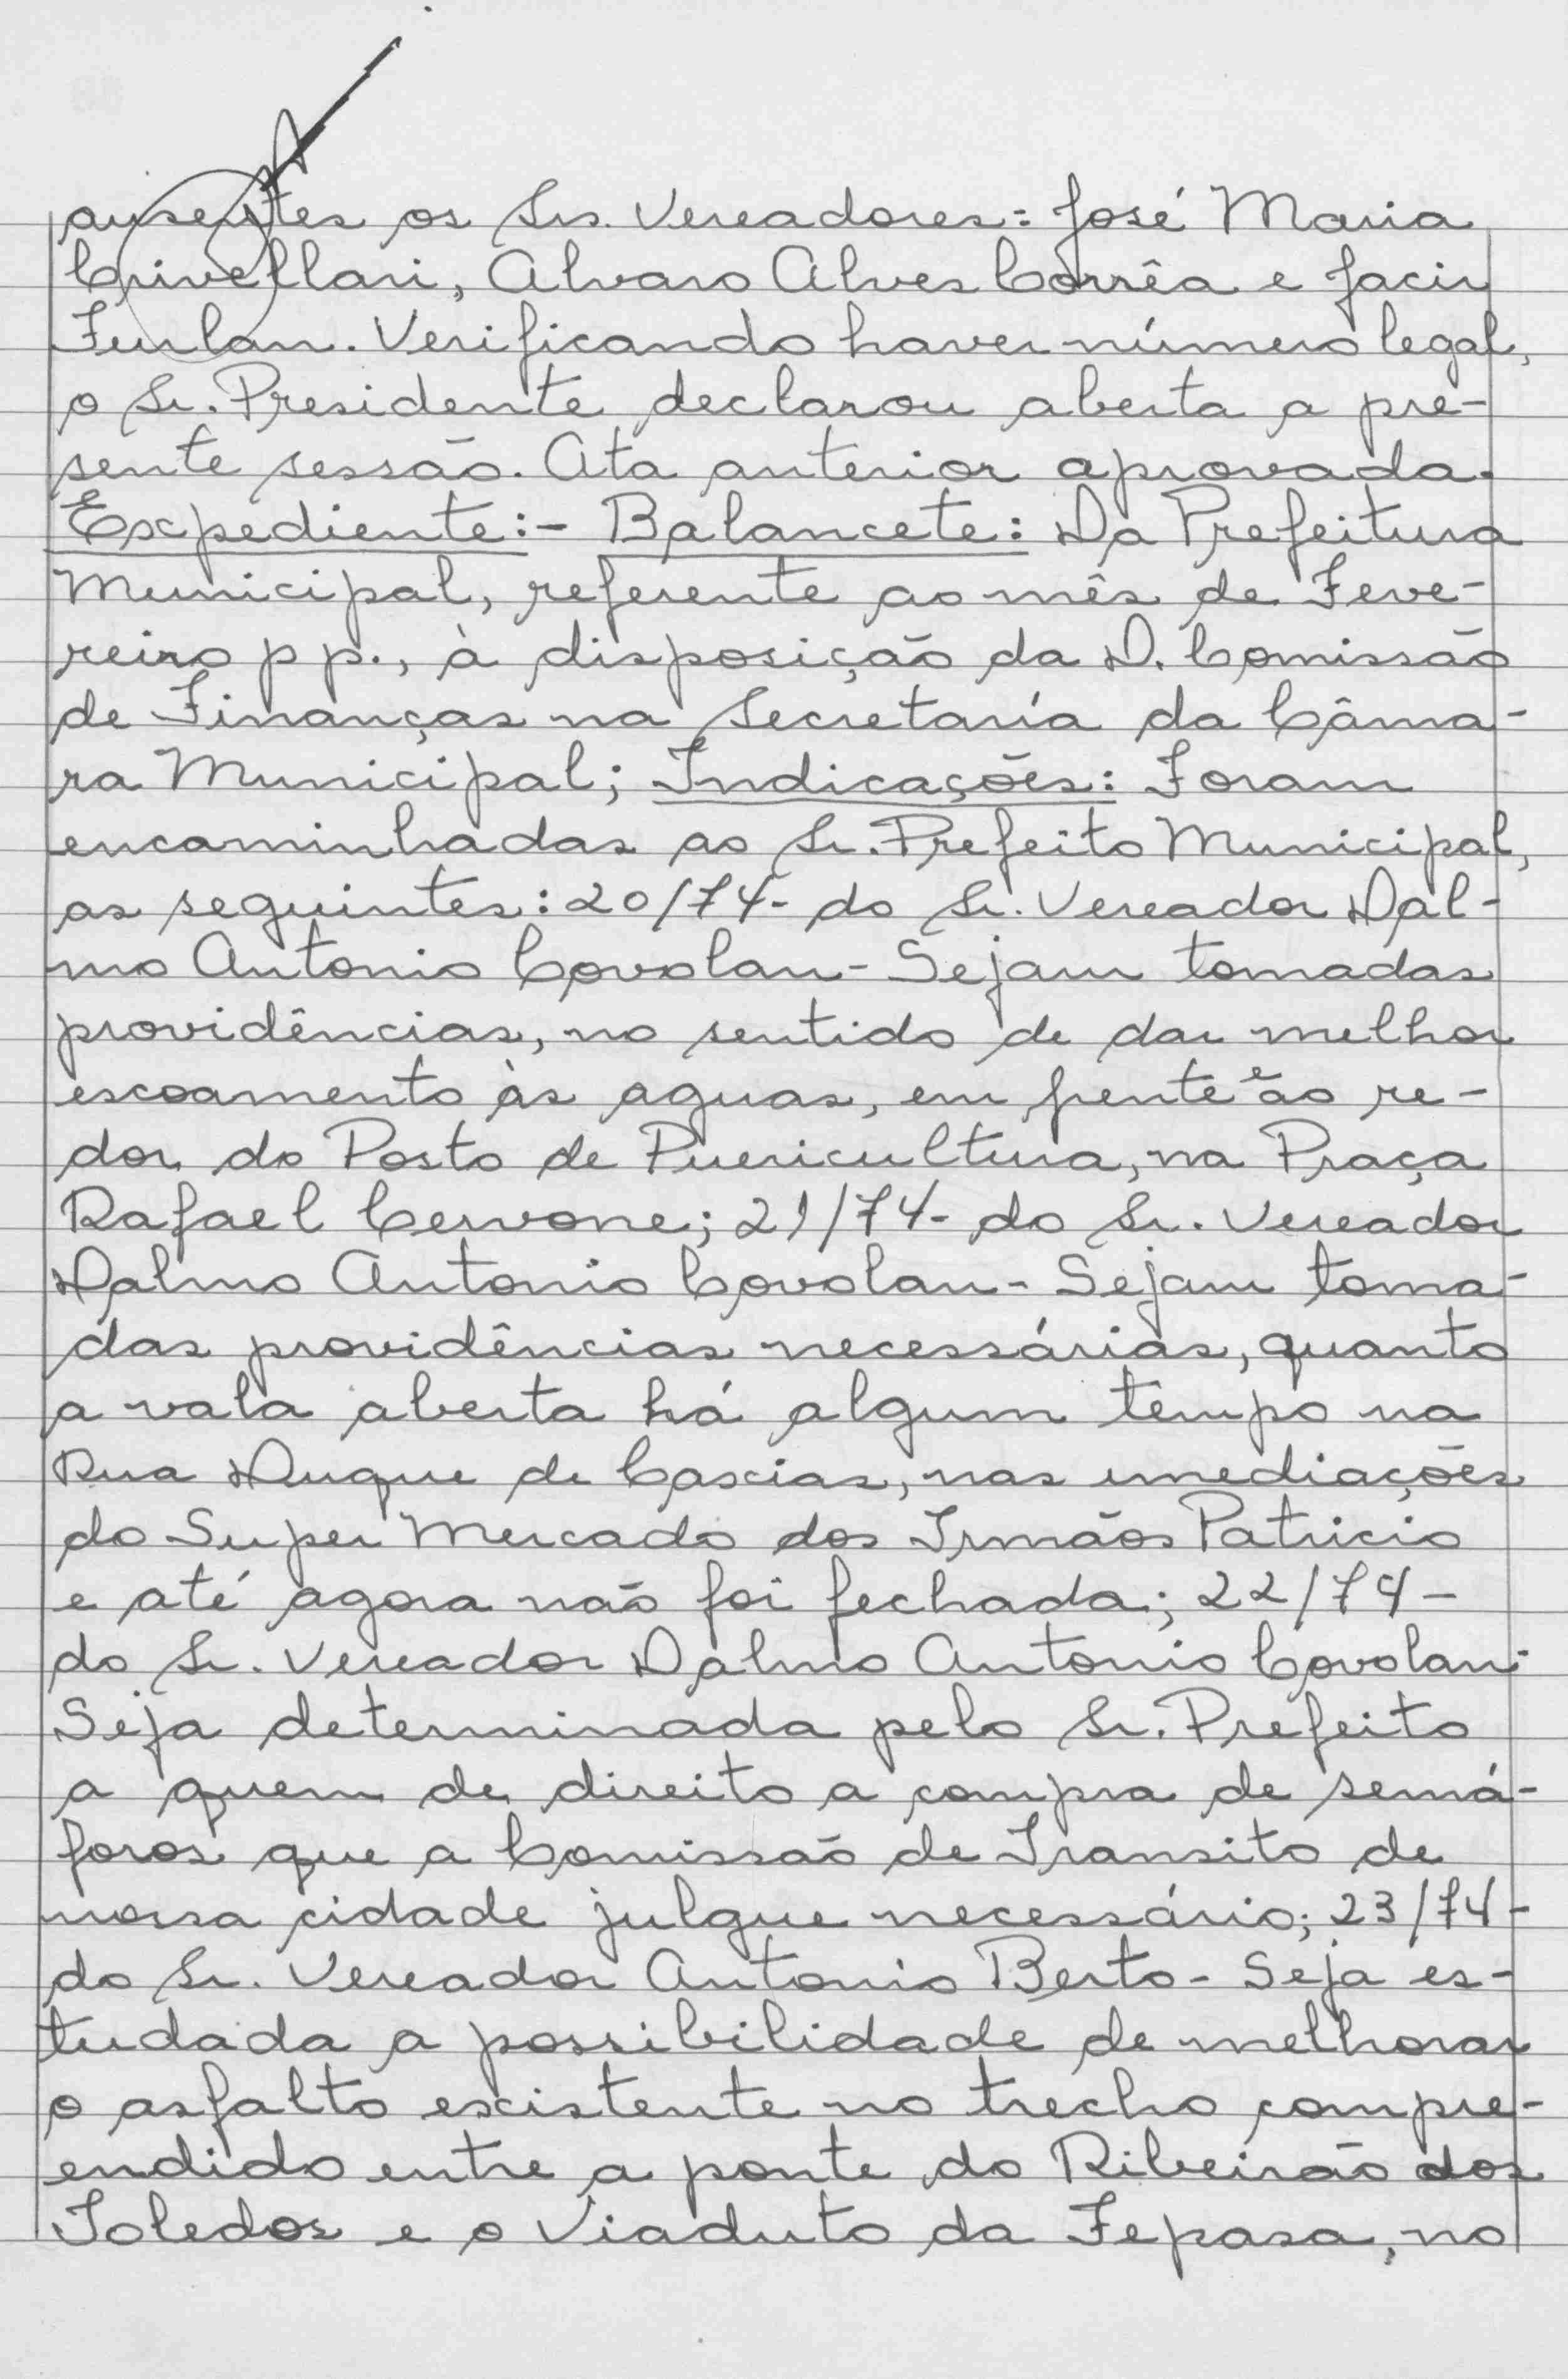 ausentes os Srs. Vereadores: José Maria
Crivellari, Alvaro Alves Corrêa e Jacir
Furlan. Verificando haver número legal,
o Sr. Presidente declarou aberta a pre-
sente sessão. Ata anterior aprovada.
Expediente:- Balancete: Da Prefeitura
Municipal, referente ao mês de Feve-
reiro p p., à disposição da D. Comissão
de Finanças na Secretaría da Câma-
ra Municipal; Indicações: Foram
encaminhadas ao Sr. Prefeito Municipal,
as seguintes: 20/74- do Sr. Vereador Dal-
mo Antonio Covolan- Sejam tomadas
providências, no sentido de dar melhor
escoamento às aguas, em frente e ao re-
dor do Posto de Puericultura, na Praça
Rafael Cervone; 21/74- do Sr. Vereador
Dalmo Antonio Covolan- Sejam toma-
das providências necessárias, quanto
a vala aberta há algum tempo na
Rua Duque de Caxias, nas imediações
do Super Mercado dos Irmãos Patricio
e até agora não foi fechada; 22/74-
do Sr. Vereador Dalmo Antonio Covolan-
Seja determinada pelo Sr. Prefeito
a quem de direito a compra de semá-
foros que a Comissão de Transito de
nossa cidade julgue necessário; 23/74-
do Sr. Vereador Antonio Berto- Seja es-
tudada a possibilidade de melhorar
o asfalto existente no trecho compre-
endido entre a ponte do Ribeirão dos
Toledos e o Viaduto da Fepasa, no